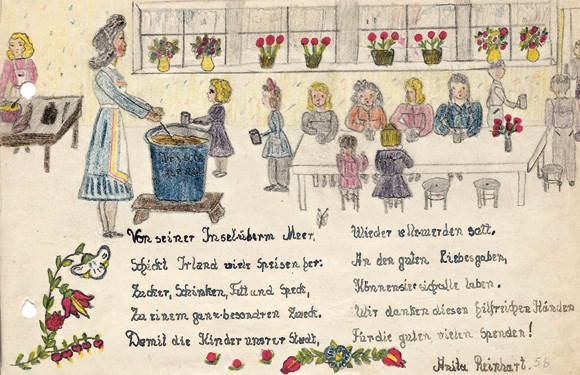 Von seiner Insel überm Meer,
Schickt Irland viele Speisen her:
Zucker, Schinken, Fett und Speck,
Zu einem ganz besondren Zweck.
Damit die Kinder unsrer Stadt,
Wieder alle werden satt.
An den guten Liebesgaben,
Können sie sich alle laben.
Wir danken diesen hilfreichen Händen
Für die guten vielen Spenden!
Anita Reinhart. 5b